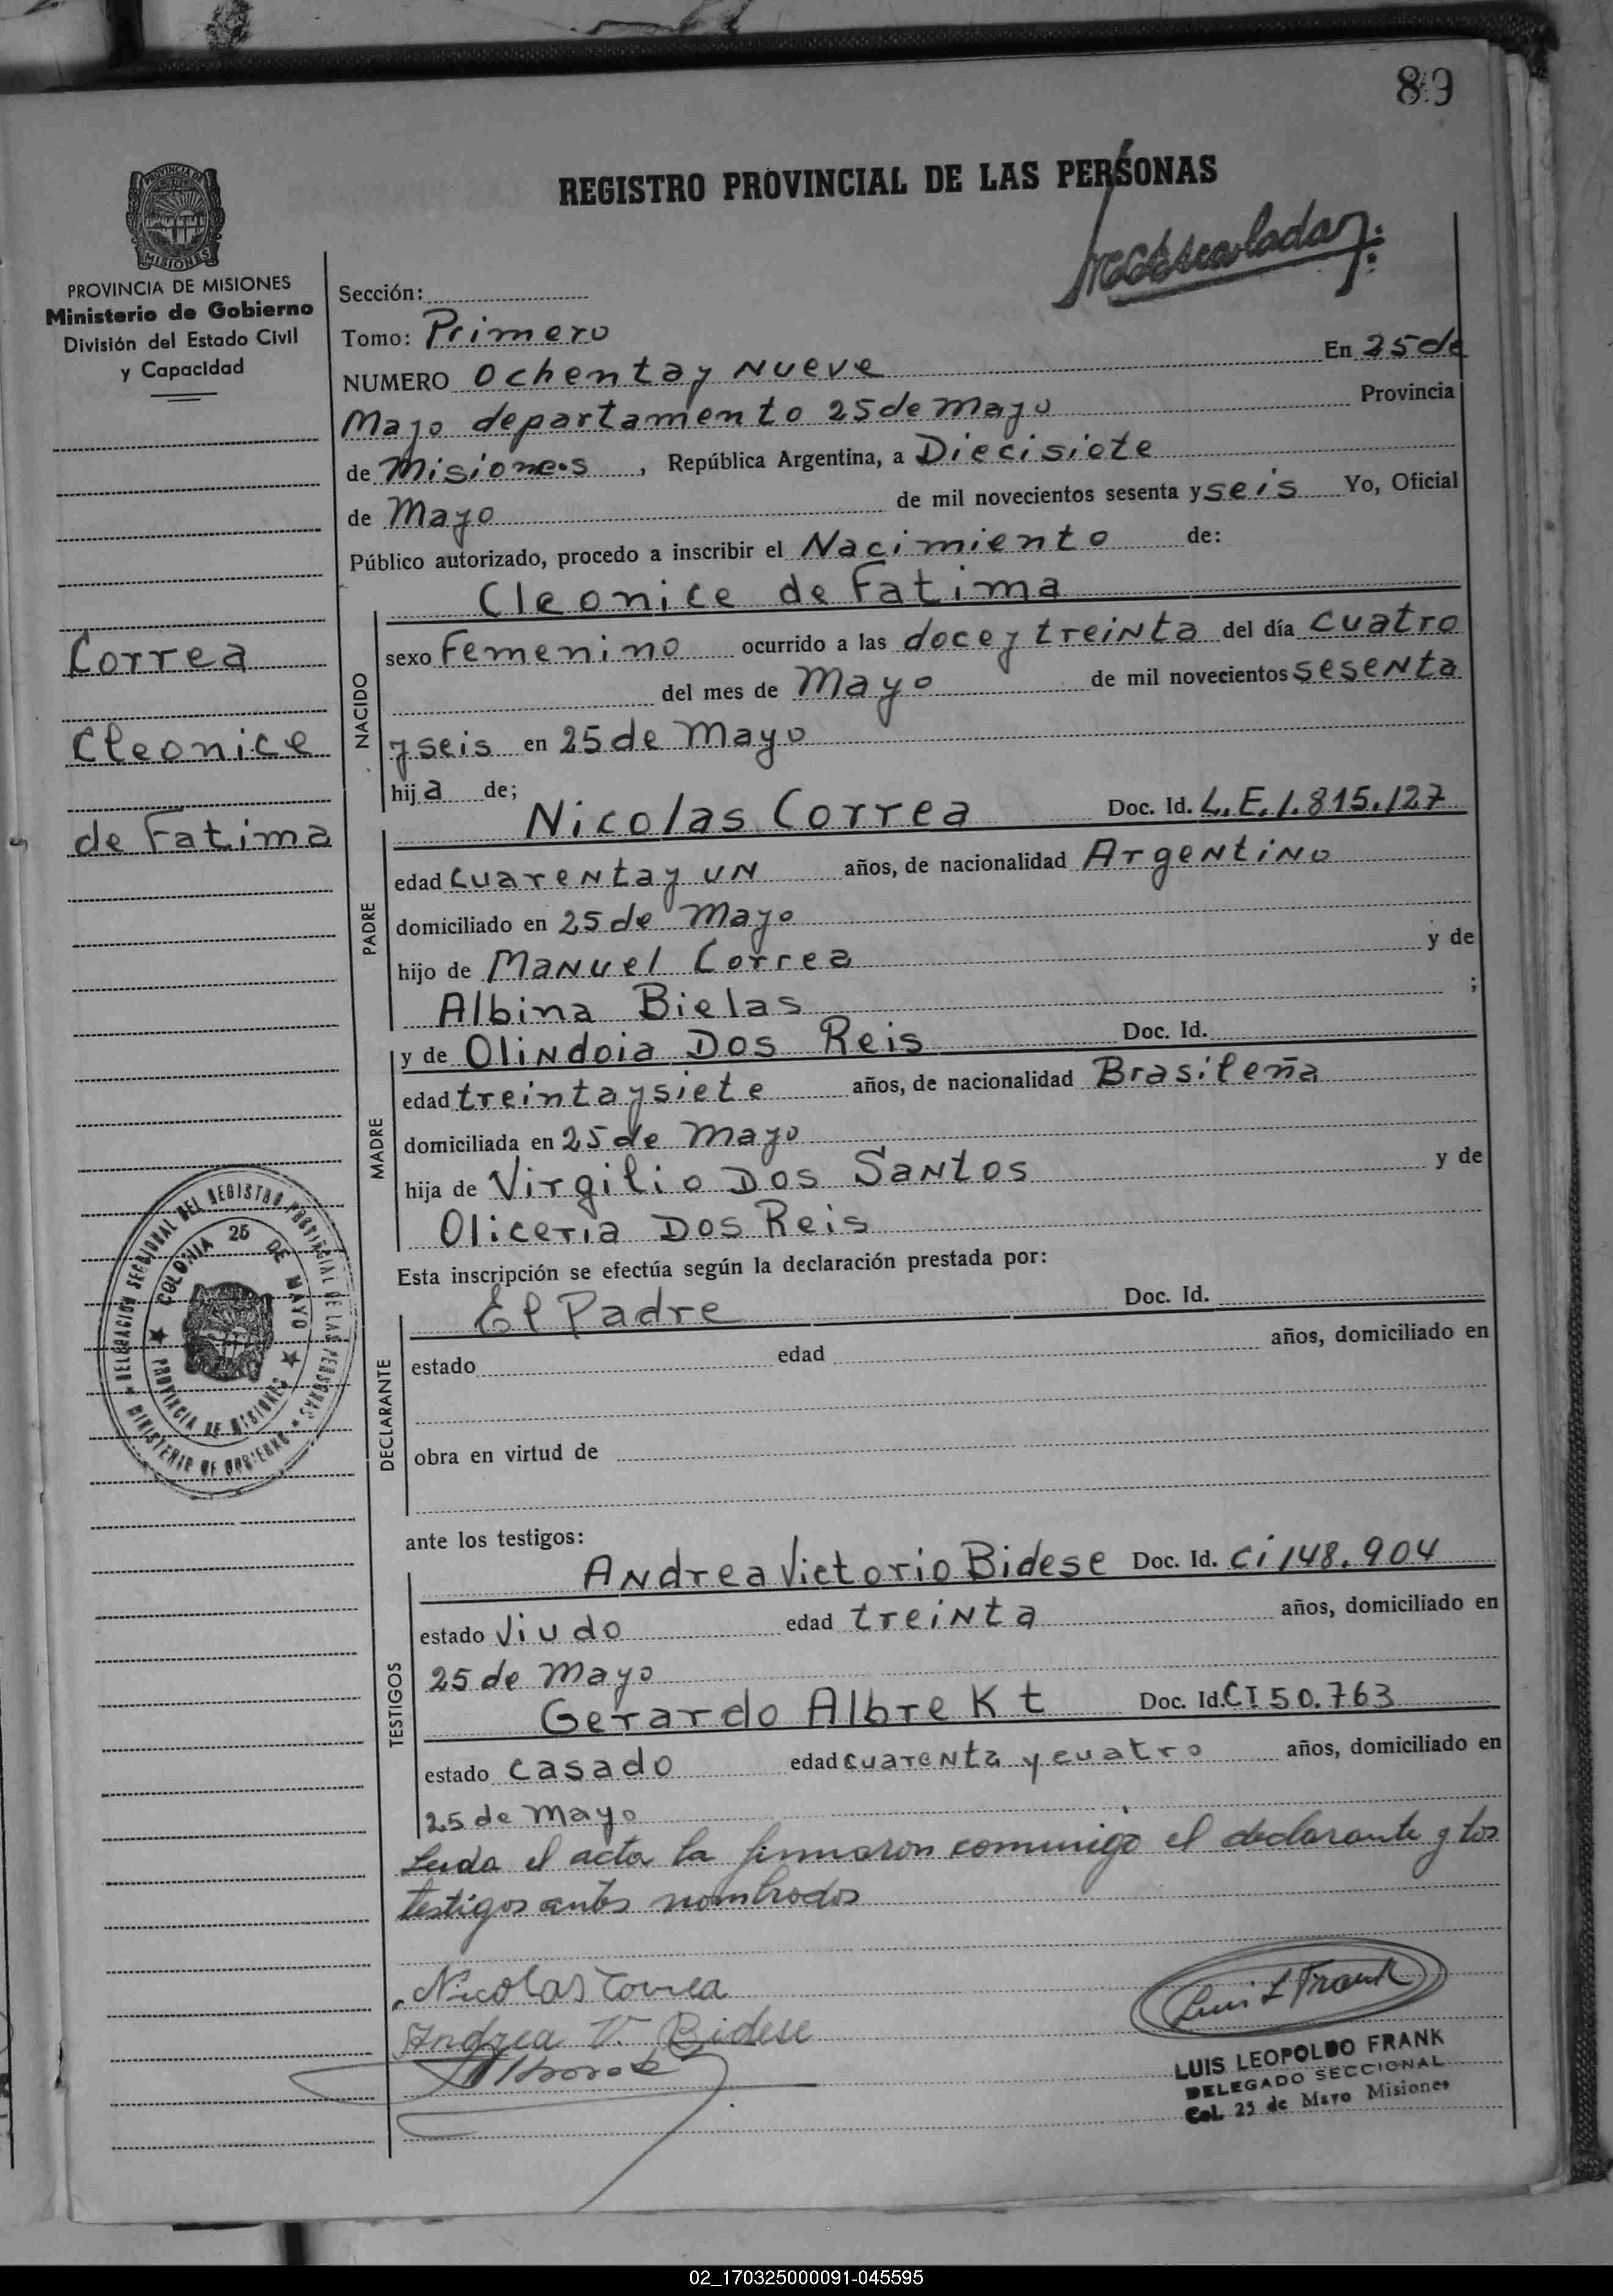 89
REGISTRO PROVINCIAL DE LAS PERSONAS
PROVINCIA DE MISIONES
PROVINCIA DE MISIONES
Ministerio de Gobierno
División del Estado Civil
y Capacidad
Correa
Cleonice
de Fatima
DELEGACION SECCIONAL DEL REGISTRO PROVINCIAL DE LAS PERSONAS
MINISTERIO DE GOBIERNO
COLONIA 25 DE MAYO
PROVINCIA DE MISIONES
Sección:
Tomo: Primero
NUMERO Ochenta y Nueve En 25 de
Mayo departamento 25 de Mayo Provincia
de Misiones, República Argentina, a Diecisiete
de Mayo de mil novecientos sesenta y seis Yo, Oficial
Público autorizado, procedo a inscribir el Nacimiento de:
NACIDO
Cleonice de Fatima
sexo Femenino ocurrido a las doce y treinta del día cuatro
del mes de Mayo de mil novecientos sesenta
y seis en 25 de Mayo
hija de;
PADRE
Nicolas Correa Doc. Id. L.E. 1.815.127
edad cuarenta y un años, de nacionalidad Argentino
domiciliado en 25 de Mayo
hijo de Manuel Correa y de
Albina Bielas ;
MADRE
y de Olindoia Dos Reis Doc. Id.
edad treinta y siete años, de nacionalidad Brasileña
domiciliada en 25 de Mayo
hija de Virgilio Dos Santos y de
Oliceria Dos Reis
Esta inscripción se efectúa según la declaración prestada por:
DECLARANTE
El Padre Doc. Id.
estado edad años, domiciliado en
obra en virtud de
ante los testigos:
TESTIGOS
Andrea Victorio Bidese Doc. Id. Ci 148.904
estado Viudo edad treinta años, domiciliado en
25 de Mayo
Gerardo Albrekt Doc. Id. CI 50.763
estado casado edad cuarenta y cuatro años, domiciliado en
25 de Mayo
Leida el acta la firmaron comunigo el declarante y los
testigos antes nombrados
Nicolas Correa
Andrea V. Bidese
Luis L Frank
LUIS LEOPOLDO FRANK
DELEGADO SECCIONAL
Col. 25 de Mayo Misiones
02_170325000091-045595